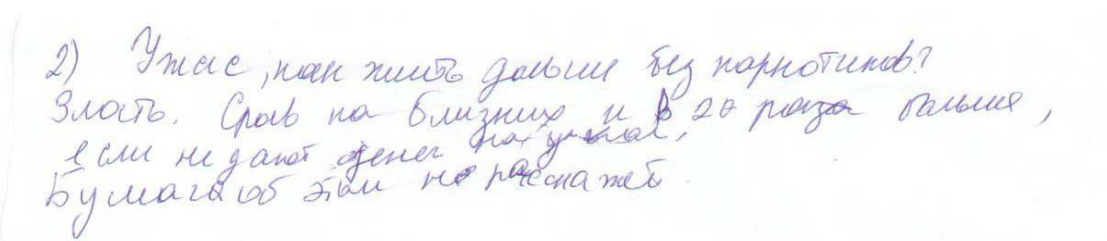 2) Ужас, как жить дальше без наркотиков?
Злость. Срыв на близких и в 20 раза больше,
если не дают денег на укол,
Бумага об этом не расскажет.